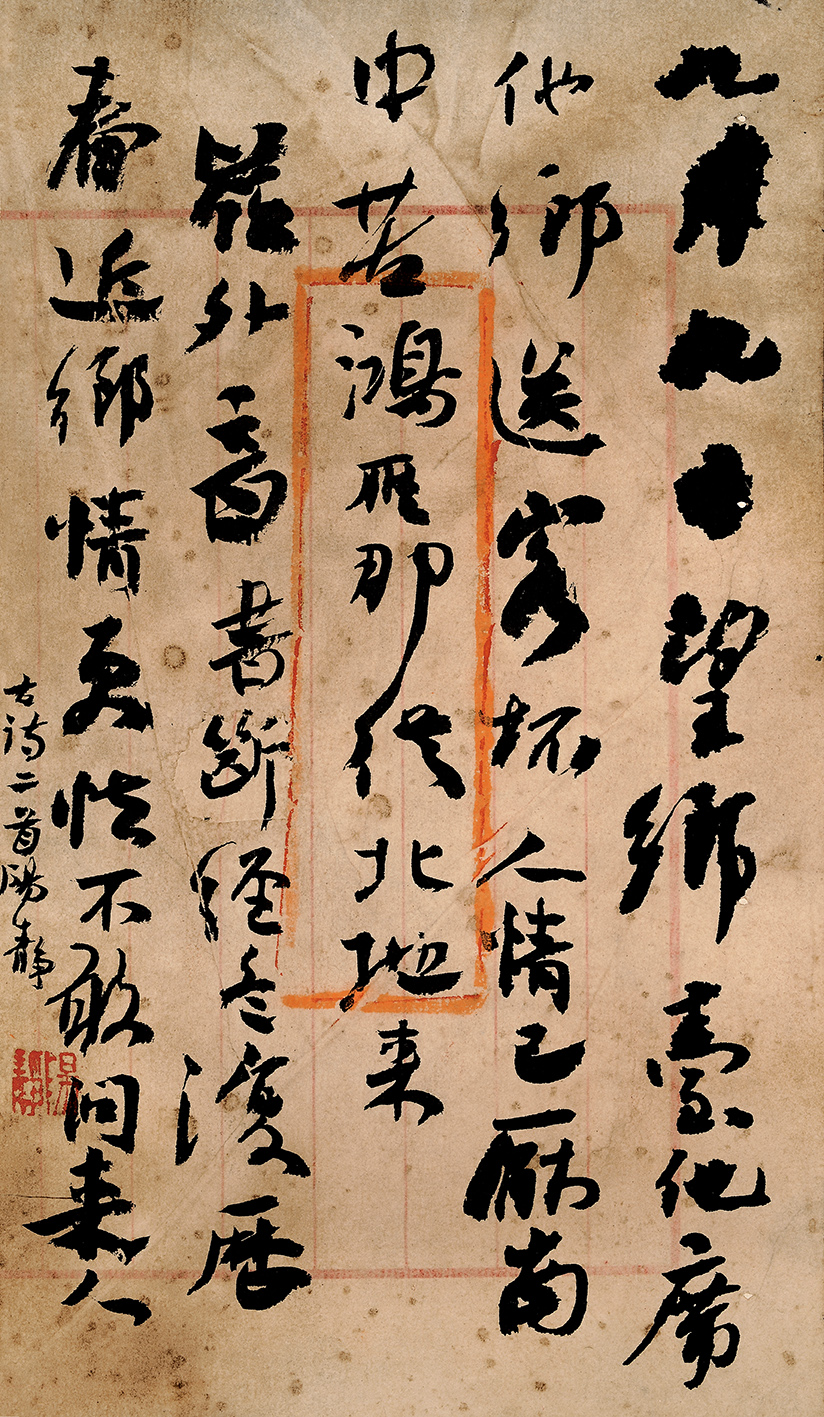 九月九日望鄉臺他席
他鄉送客杯人情已厭南
中苦鴻雁那從北地来
嶺外音書斷經冬復歷
春近鄉情更怯不敢問来人
古诗二首 静